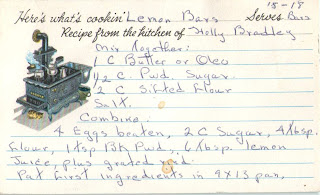 15-18
Here's what's cookin' Lemon Bars Serves Bars
Recipe from the kitchen of Holly Bradley
Mix Together:
1 C Butter or Oleo
1/2 C. Pwd. Sugar
2 C Sifted Flour
Salt.
Combine:
4 Eggs beaten, 2 C Sugar, 4 tbsp.
flour, 1 tsp Bkg Pwd., 6 tbsp. lemon
Juice, plus grated rind.
Pat first ingredients in 9x13 pan,